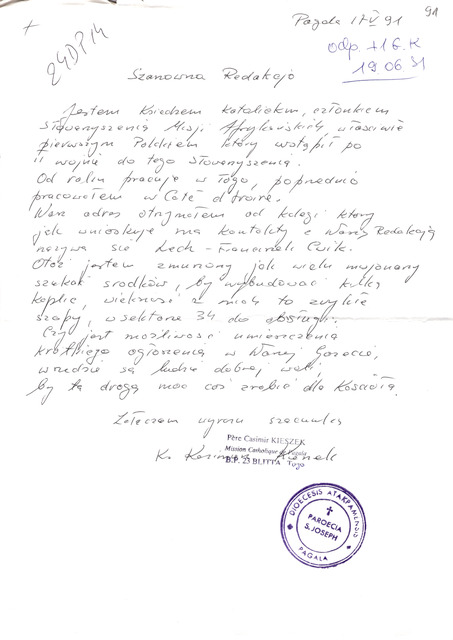 91
Pagala 17 V 91
24DP14
odp. + 1 G. K
19.06.91
Szanowna Redakcjo
Jestem Księdzem katolickim, członkiem
Stowarzyszenia Misji Afrykańskich, właściwie
pierwszym Polakiem który wstąpił po
II wojnie do tego Stowarzyszenia.
Od roku pracuję w Togo, poprzednio
pracowałem w Côte d'Ivoire.
Wasz adres otrzymałem od kolegi który
jak wnioskuję ma kontakty z Waszą Redakcją
nazywa się Lech - Francineli Ćwik.
Otóż jestem zmuszony jak wielu misjonarzy
szukać środków, by wybudować kilka
kaplic, większość z nich to zwykłe
szopy, w sektorze 34 do obsługi.
Czy jest możliwość umieszczenia
krótkiego ogłoszenia w Waszej Gazecie,
wszędzie są ludzie dobrej woli,
by tą drogą móc coś zrobić dla Kościoła.
Załączam wyrazy szacunku
Père Casimir KIESZEK
Mission Catholique Pagala
B.P. 23 BLITTA Togo
Ks. Kazimierz Kieszek
DIOECESIS ATAKPAMENSIS
PAROECIA
S. JOSEPH
PAGALA